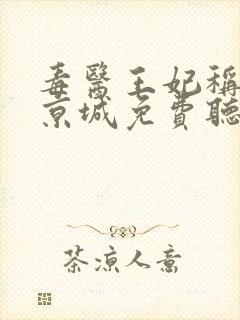 毒醫王妃稱
京城免費聽
茶凉人意